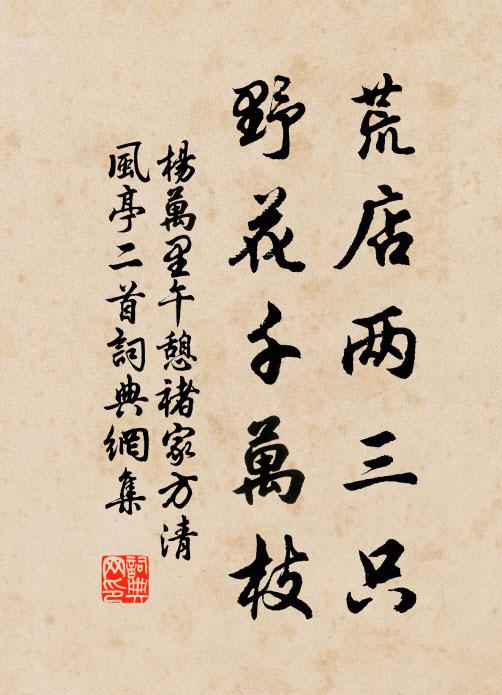 荒店两三只
野花千萬枝
楊萬里午憩褚家方清
風亭二首詞典網集
詞典
网印